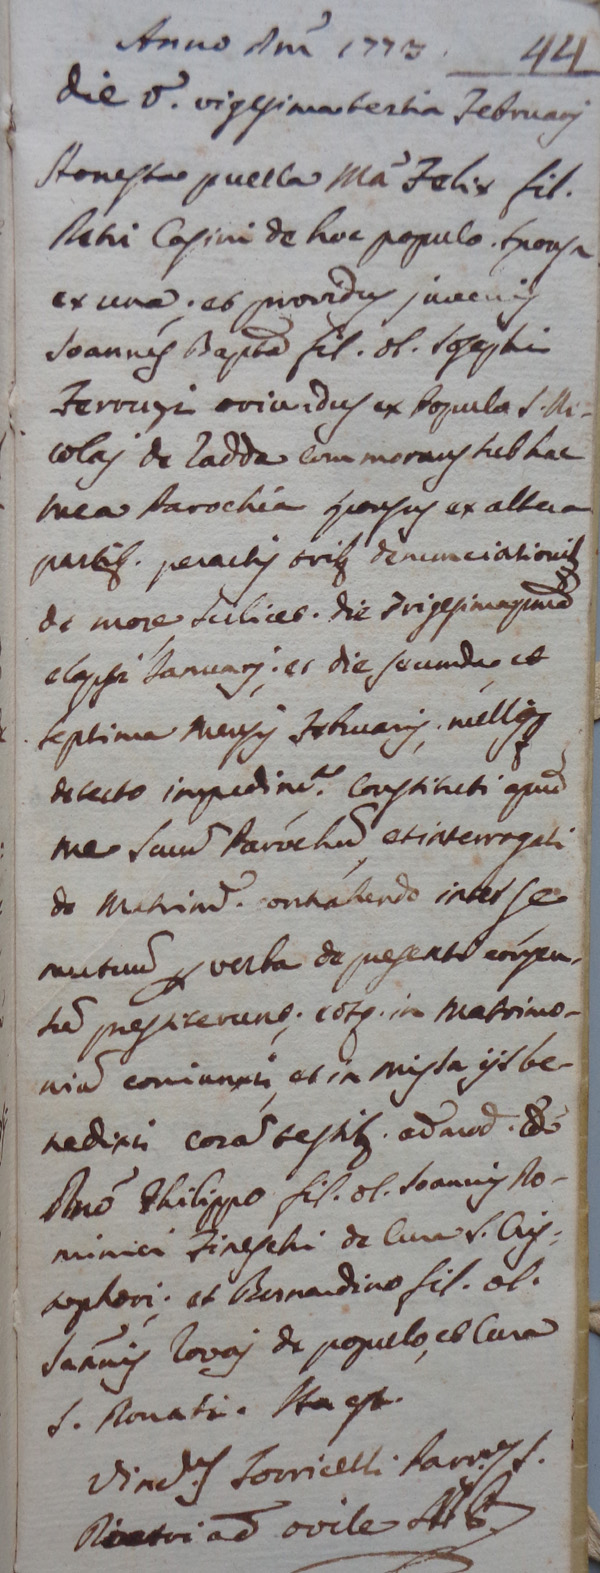 Anno Dñi 1773. 44
die v. vigesimatertia Februarij
Honesta puella Mã Felix fil.
Petri Casini de hoc populo sponsa
ex una; et providus juvenis
Joannes Baptã fil. ol. Josephi
Ferruzzi oriundus ex Populo S. Ni-
colaj de Radda commorans sub hac
mea Parochia sponsus ex altera
partib. peractis trib denunciationib
de more scilicet die Trigesimaprimã
elapsi Januarij; et die secunda et
septima mensis Februarij, nulloq
detecto impedimto. Constituti apud
me Parochũ, et interrogati
de Matrimõ. contrahendo inter se
mutuũ verba de presenti consen-
sũ prestiterunt; eosq. in Matrimo-
niũ coniunxi, et in missa ijs be-
nedixi corã testib. admod. Rdõ
Dnõ Philippo fil. ol. Joannis Do-
minici Fineschi de Cura S. Cris-
tophori; et Bernardino fil. ol.
Joannis de populo, et Cura
S. Donati. Ita est.
Torricelli S.
Petri ad ovile